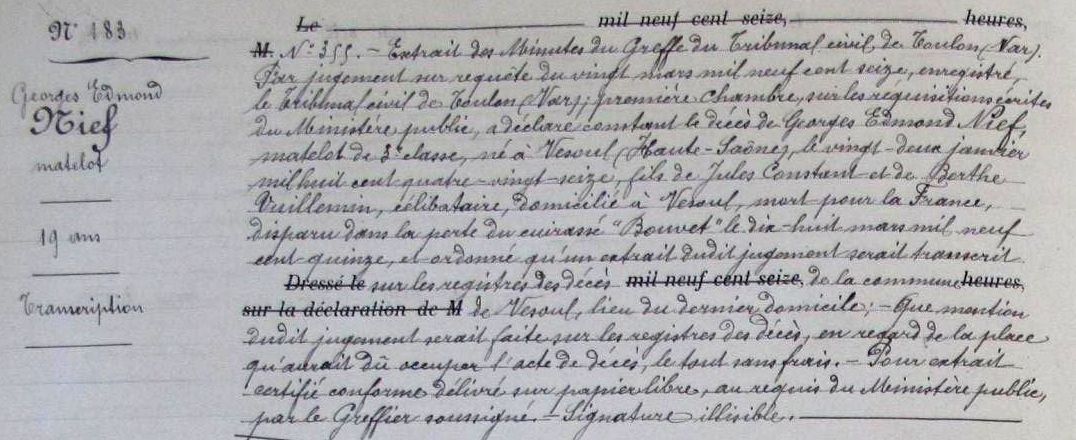 N° 183
Georges Edmond
Nief
matelot
19 ans
Transcription
Le mil neuf cent seize, heures,
M. N° 355. — Extrait des Minutes du Greffe du Tribunal civil de Toulon (Var).
Par jugement sur requête du vingt mars mil neuf cent seize, enregistré,
le Tribunal civil de Toulon (Var), première Chambre, sur les réquisitions écrites
du Ministère public, a déclaré constant le décès de Georges Edmond Nief,
matelot de 3e classe, né à Vesoul (Haute-Saône), le vingt-deux janvier
mil huit cent quatre-vingt-seize, fils de Jules Constant et de Berthe
Vuillemin, célibataire, domicilié à Vesoul, mort pour la France,
disparu dans la perte du cuirassé "Bouvet" le dix-huit mars mil neuf
cent quinze, et ordonné qu'un extrait dudit jugement serait transcrit
Dressé le sur les registres des décès mil neuf cent seize, de la commune heures,
sur la déclaration de M de Vesoul, lieu du dernier domicile; — Que mention
dudit jugement serait faite sur les registres des décès, en regard de la place
qu'aurait dû occuper l'acte de décès, le tout sans frais. — Pour extrait
certifié conforme délivré sur papier libre, au requis du Ministère public,
par le Greffier soussigné. — Signature illisible.